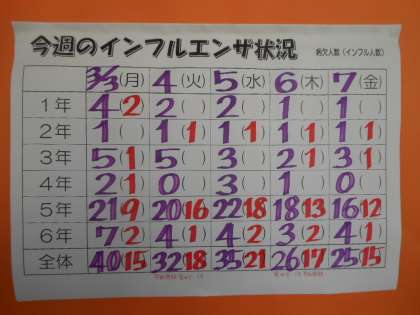 今週のインフルエンザ状況 病欠人数(インフル人数)
3/3(月) 4(火) 5(水) 6(木) 7(金)
1年 4(2) 2( ) 2( ) 1( ) 1( )
2年 1( ) 1(1) 1(1) 1(1) 1(1)
3年 5(1) 5( ) 3( ) 2(1) 3(1)
4年 2(1) 0( ) 3( ) 1( ) 0( )
5年 21(9) 20(16) 22(18) 18(13) 16(12)
6年 7(2) 4(1) 4(2) 3(2) 4(1)
全体 40(15) 32(18) 35(21) 26(17) 25(15)